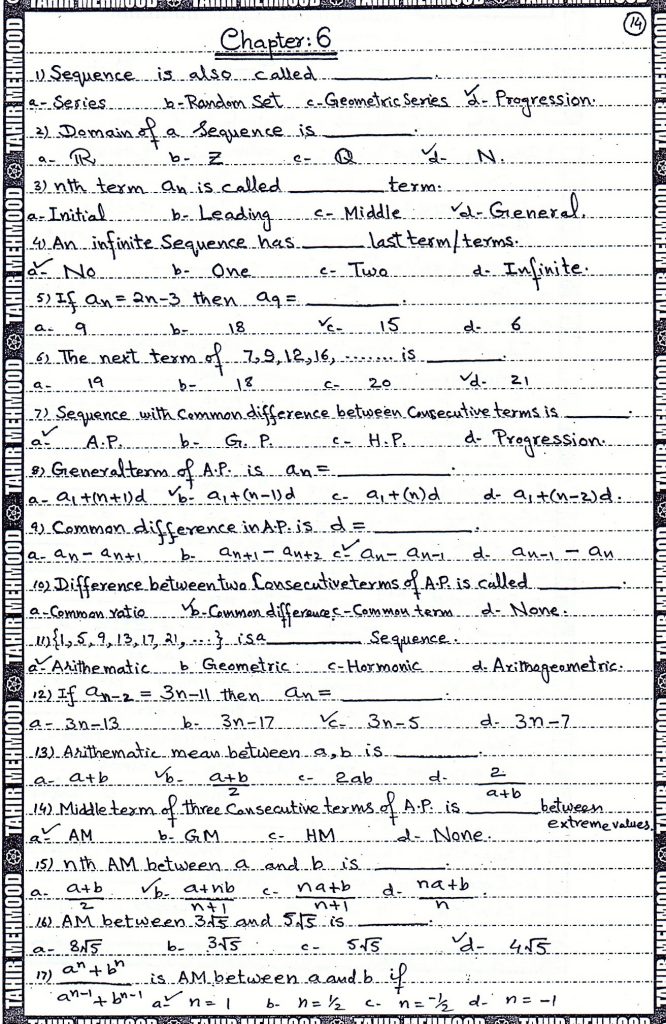 TAHIR MEHMOOD
14
Chapter: 6
1) Sequence is also called ________.
a- Series b- Random Set c- Geometric Series ✓d- Progression.
2) Domain of a Sequence is ________.
a- ℝ b- Z c- Q ✓d- N.
3) nth term an is called ________ term.
a- Initial b- Leading c- Middle ✓d- General.
4) An infinite Sequence has ________ last term/terms.
✓a- No b- One c- Two d- Infinite.
5) If an = 2n-3 then a9 = ________.
a- 9 b- 18 ✓c- 15 d- 6
6) The next term of 7,9,12,16, ....... is ________
a- 19 b- 18 c- 20 ✓d- 21
7) Sequence with common difference between Consecutive terms is ________.
✓a- A.P. b- G.P. c- H.P. d- Progression.
8) General term of A.P. is an = ________.
a- a1+(n+1)d ✓b- a1+(n-1)d c- a1+(n)d d- a1+(n-2)d.
9) Common difference in A.P. is d = ________.
a- an - an+1 b- an+1 - an+2 ✓c- an - an-1 d- an-1 - an
10) Difference between two Consecutive terms of A.P. is called ________.
a- Common ratio ✓b- Common difference c- Common term d- None.
11) {1, 5, 9, 13, 17, 21, ...} is a ________ Sequence.
✓a- Arithematic b- Geometric c- Hormonic d- Arithmogeometric.
12) If an-2 = 3n-11 then an = ________.
a- 3n-13 b- 3n-17 ✓c- 3n-5 d- 3n-7
13) Arithematic mean between a,b is ________.
a- a+b ✓b- a+b/2 c- 2ab d- 2/a+b
14) Middle term of three Consecutive terms of A.P. is ________ between extreme values.
✓a- AM b- GM c- HM d- None.
15) nth AM between a and b is ________.
a- a+b/2 ✓b- a+nb/n+1 c- na+b/n+1 d- na+b/n.
16) AM between 3√5 and 5√5 is ________.
a- 8√5 b- 3√5 c- 5√5 ✓d- 4√5
17) a^n + b^n / a^n-1 + b^n-1 is AM between a and b if
✓a- n = 1 b- n = 1/2 c- n = -1/2 d- n = -1